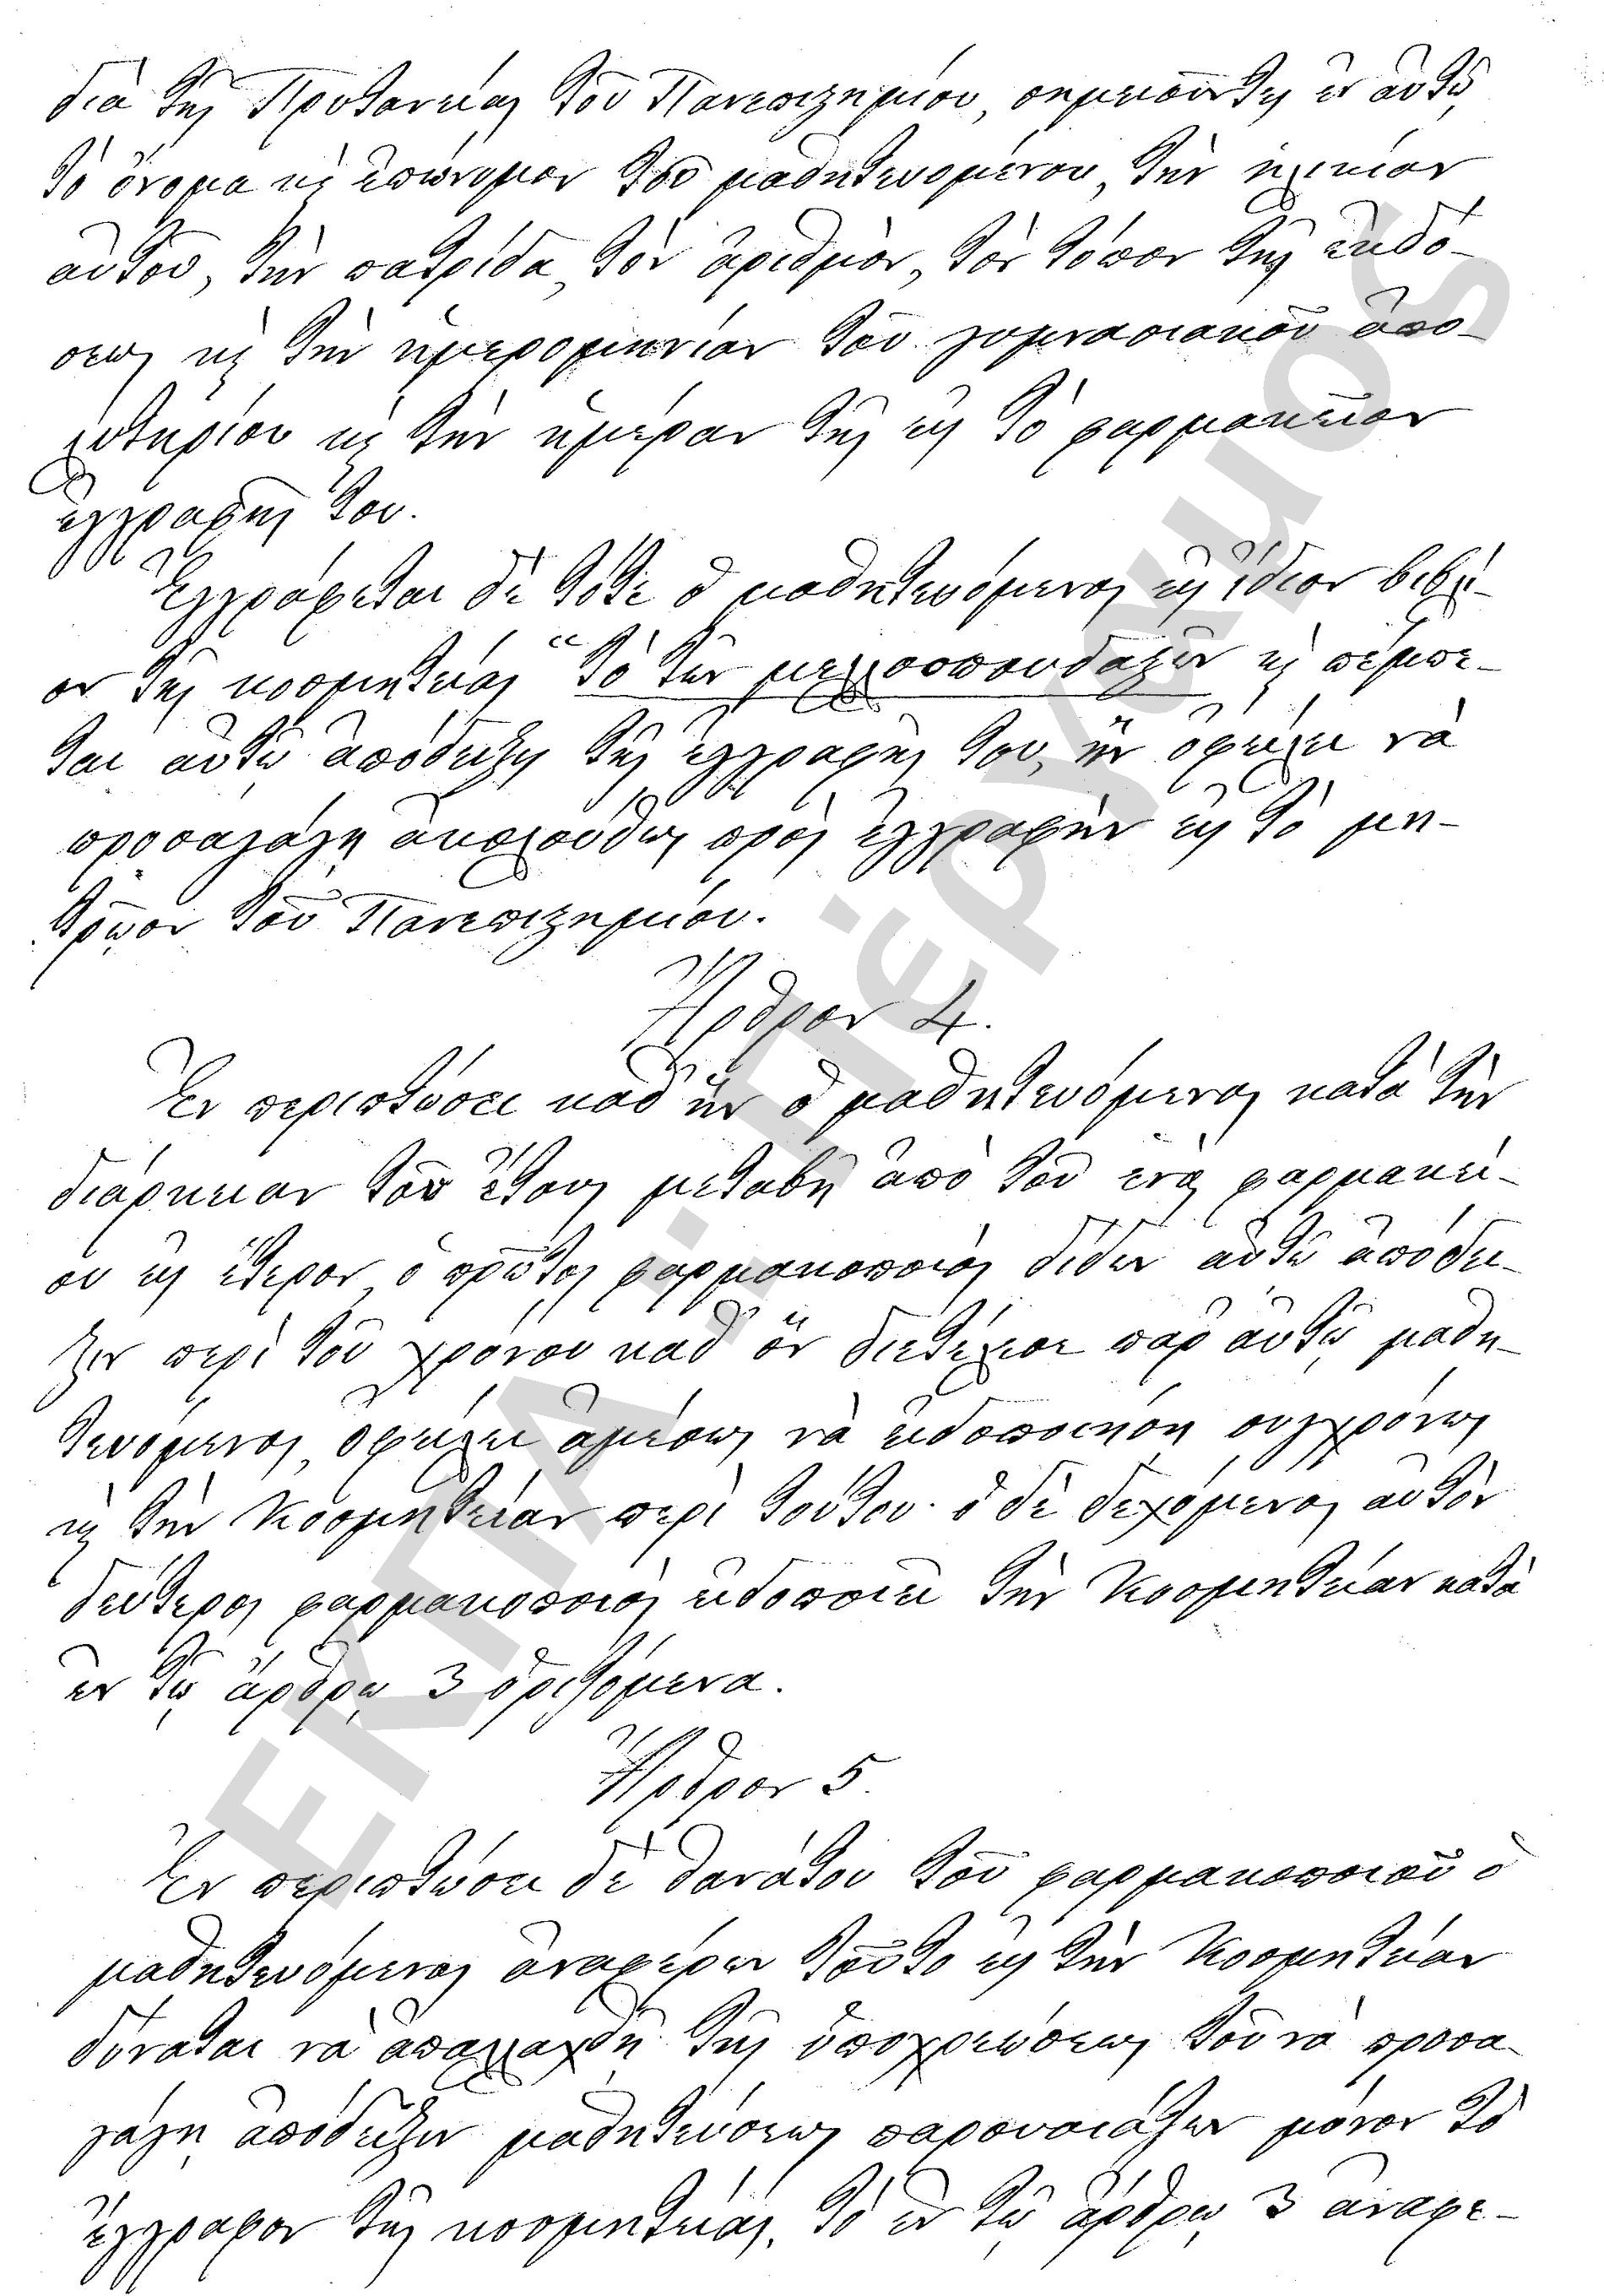 διὰ τῆς Πρυτανείας τοῦ Πανεπιστημίου, σημειοῦντες ἐν αὐτῷ
τὸ ὄνομα κὶ ἐπώνυμον τοῦ μαθητευομένου, τὴν ἡλικίαν
αὐτοῦ, τὴν πατρίδα, τὸν ἀριθμὸν, τὸν τόπον τῆς ἐκδό-
σεως κὶ τὴν ἡμερομηνίαν τοῦ γυμνασιακοῦ ἀπο-
λυτηρίου κὶ τὴν ἡμέραν τῆς εἰς τὸ φαρμακεῖον
ἐγγραφῆς του.
Ἐγγράφεται δὲ τότε ὁ μαθητευόμενος εἰς ἴδιον βιβλί-
ον τῆς κοσμητείας "τὸ τῶν μελλοσπουδαστῶν κὶ πέμπε-
ται αὐτῷ ἀπόδειξις τῆς ἐγγραφῆς του, ἣν ὀφείλει νὰ
προσαγάγῃ ἀκολούθως πρὸς ἐγγραφὴν εἰς τὸ μη-
τρῷον τοῦ Πανεπιστημίου.
Ἄρθρον 4.
Ἐν περιπτώσει καθ' ἣν ὁ μαθητευόμενος κατὰ τὴν
διάρκειαν τοῦ ἔτους μεταβῇ ἀπὸ τοῦ ἑνὸς φαρμακεί-
ου εἰς ἕτερον, ὁ πρῶτος φαρμακοποιὸς δίδων αὐτῷ ἀπόδει-
ξιν περὶ τοῦ χρόνου καθ' ὃν διετέλεσε παρ' αὐτῷ μαθη-
τευόμενος, ὀφείλει ἀμέσως νὰ εἰδοποιήσῃ συγχρόνως
κὶ τὴν Κοσμητείαν περὶ τούτου· ὁ δὲ δεχόμενος αὐτὸν
δεύτερος φαρμακοποιὸς εἰδοποιεῖ τὴν Κοσμητείαν κατὰ
ἐν τῷ ἄρθρῳ 3 ὁριζόμενα.
Ἄρθρον 5.
Ἐν περιπτώσει δὲ θανάτου τοῦ φαρμακοποιοῦ ὁ
μαθητευόμενος ἀναφέρων τοῦτο εἰς τὴν Κοσμητείαν
δύναται νὰ ἀπαλλαχθῇ τῆς ὑποχρεώσεως τοῦ νὰ προσα-
γάγῃ ἀπόδειξιν μαθητεύσεως παρουσιάζων μόνον τὸ
ἔγγραφον τῆς κοσμητείας, τὸ ἐν τῷ ἄρθρῳ 3 ἀναφε-